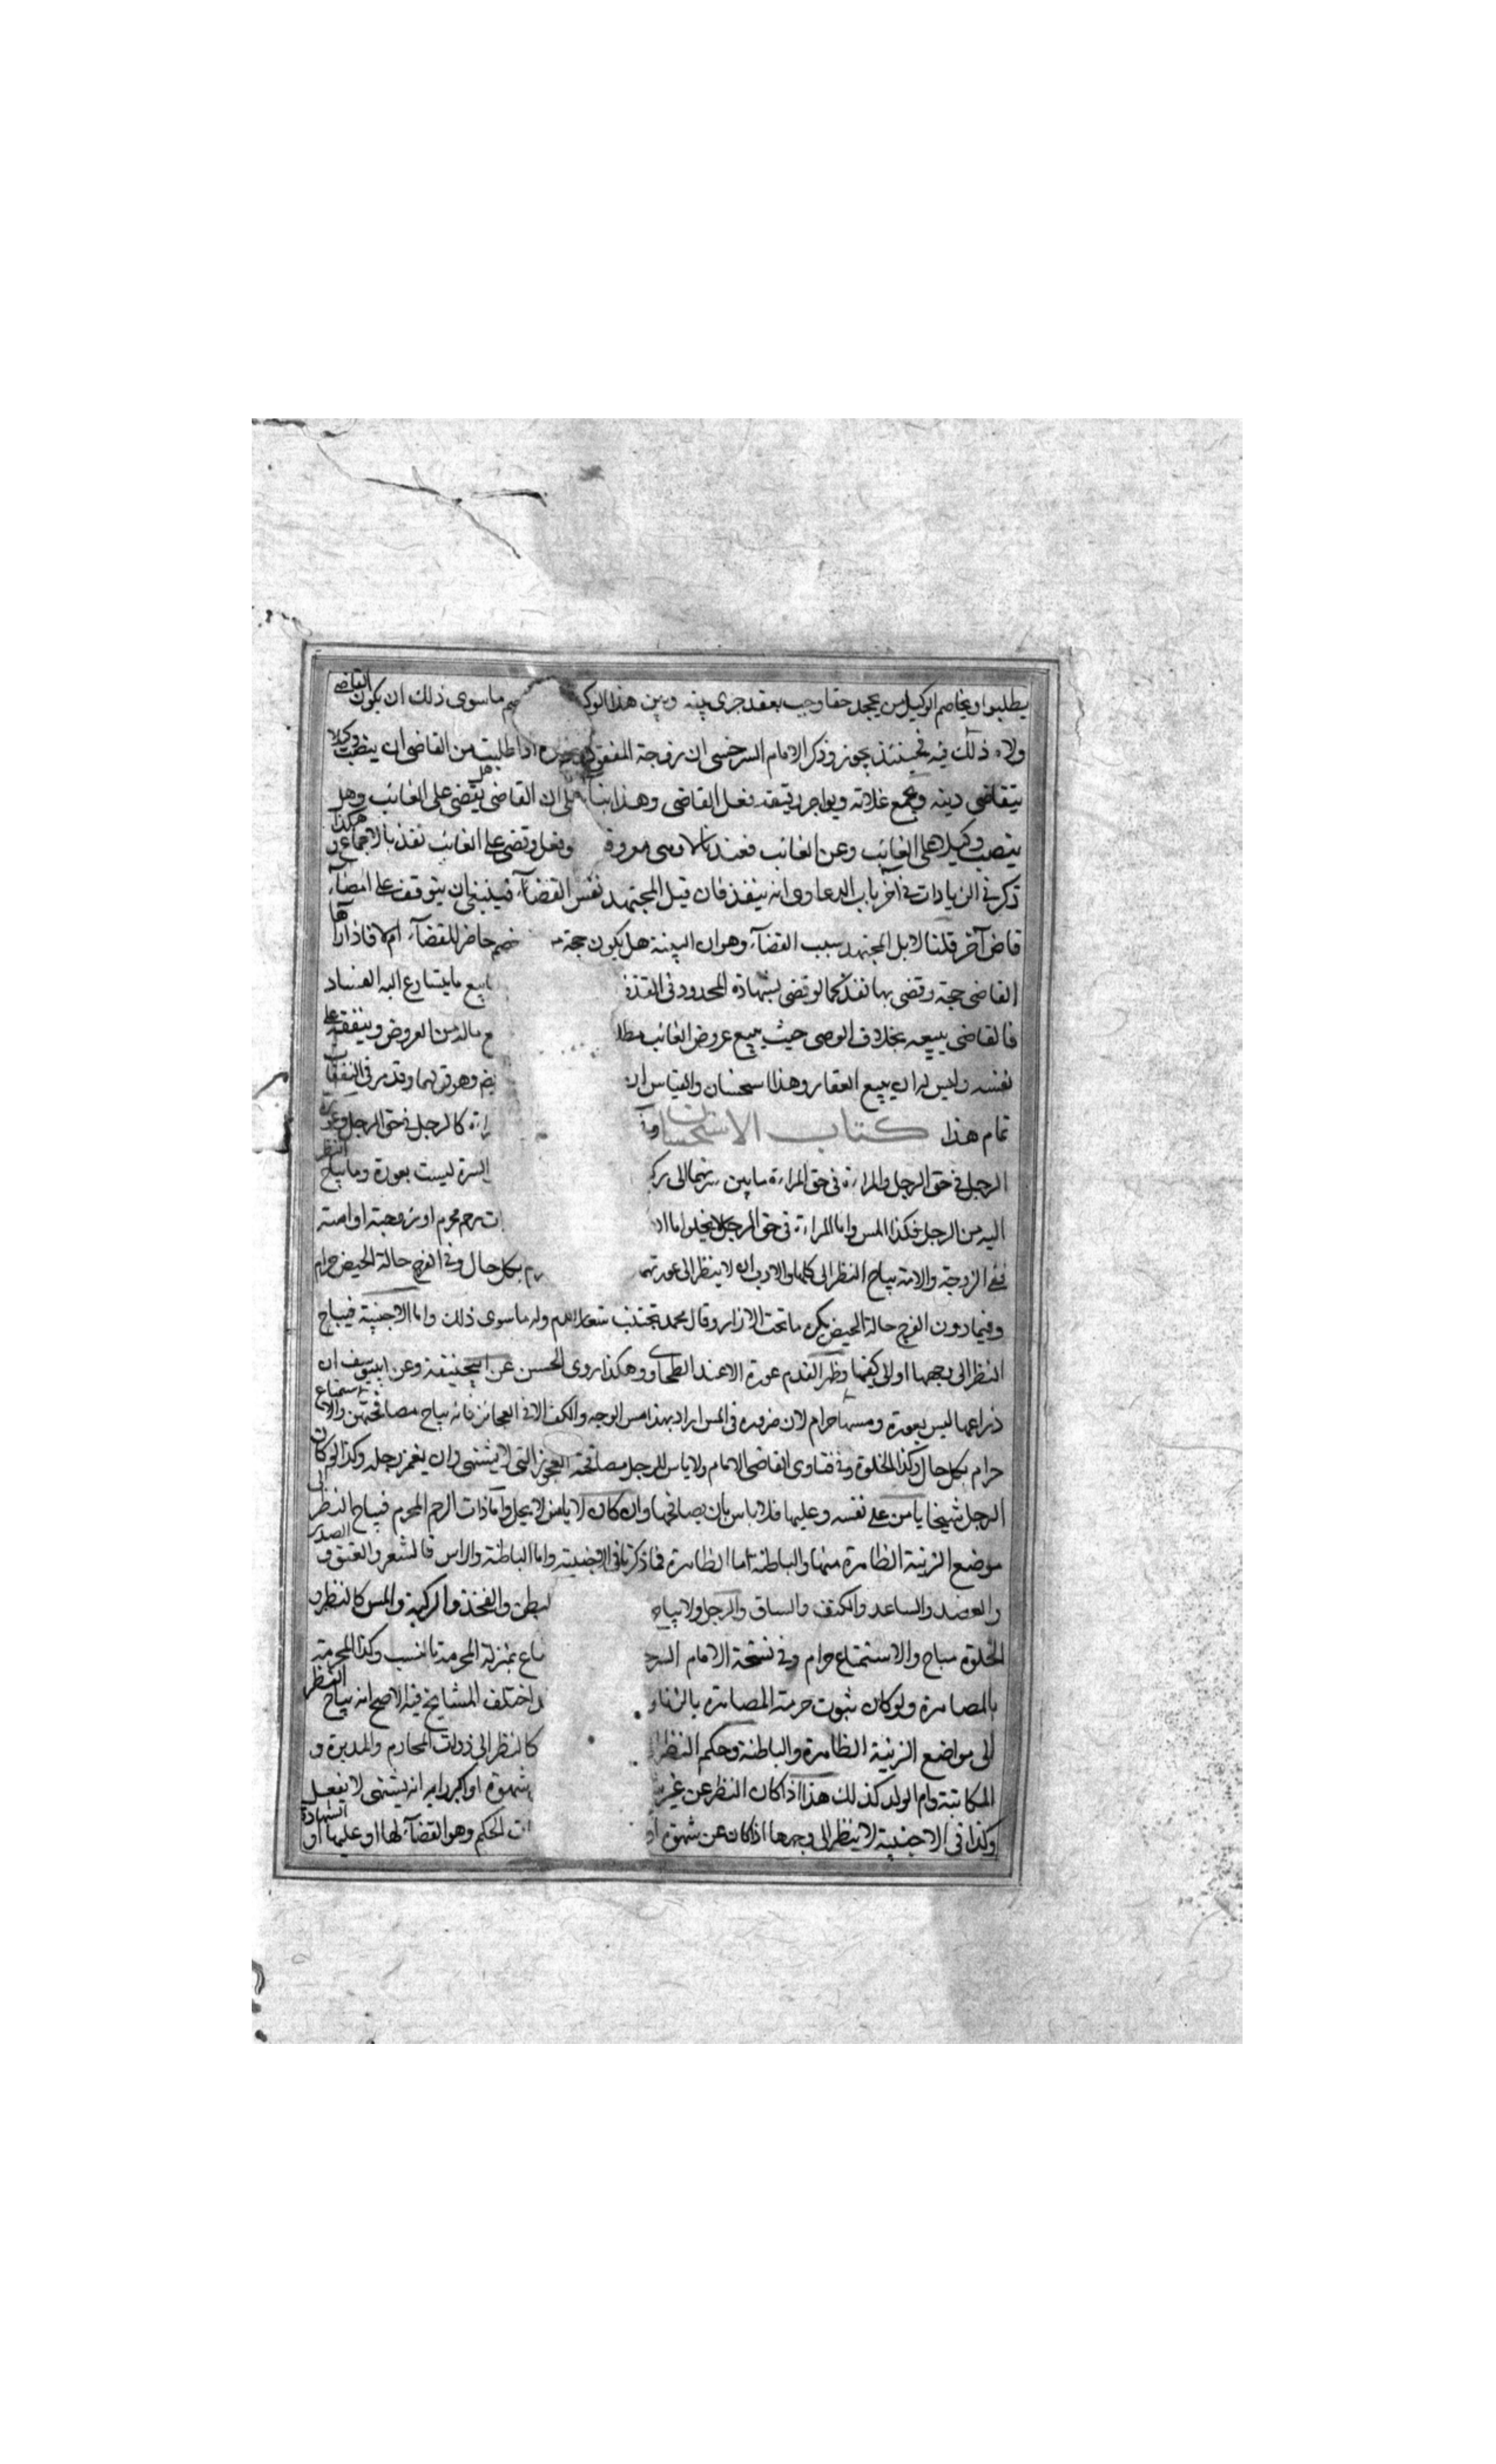 يطلبوا ويخاصم الوكيل من يجحد حقا وجب بعقد جرى بينه وبين هذا الوكـ ـم ماسوى ذلك ان يكون القاضى
ولاه ذلك فيه فحينئذ يجوز وذكر الامام السرخسى ان زوجة المفقود اذا طلبت من القاضى ان ينصب وكيلا
يتقاضى دينه ويجمع غلاته ويواجر رقيقه فعل القاضى وهذا بناء على ان القاضى هل يقضى على الغائب وهل
ينصب وكيلا على الغائب وعن الغائب فعندنا لا ولو فعل وقضى على الغائب نفذ بالاجماع هكذا
ذكر فى الزيادات فى آخر باب الدعاوى انه ينفذ فان قيل المجتهد نفس القضآء فينبغى ان يتوقف على امضآء
قاض آخر قلنا لا بل المجتهد سبب القضآء وهو ان البينة هل يكون حجة من خصم حاضر للقضآء ام لا فاذا رآها
القاضى حجة وقضى بها نفذ كما لو قضى بشهادة المحدود فى القذف يبيع ما يتسارع اليه الفساد
فالقاضى يبيعه بخلاف الوصى حيث يبيع عروض الغائب مطلـ ـع ماله من العروض وينفقه على
نفسه وليس له ان يبيع العقار وهذا استحسان والقياس ان وقد مر فى النفقات
تمام هذا كتاب الاستحسان ـراة كالرجل فى حق الرجل وعورة
الرجل فى حق الرجل والمراة فى حق المراة ما بين سرتهما الى ركبـ السرة ليست بعورة وما يباح النظر
اليه من الرجل فكذا المس واما المراة فى حق الرجل لا يخلو اما ان ـات رحم محرم او زوجته او امته
ففى الزوجة والامة يباح النظر الى كلها والادب ان لا ينظر الى عورتهما ـرم بكل حال وفى الفرج حالة الحيض حرام
وفيما دون الفرج حالة الحيض يكره ما تحت الازار وقال محمد يجتنب شعار الدم وله ماسوى ذلك واما الاجنبية فيباح
النظر الى وجهها او الى كفها وظهر القدم عورة الا عند الطحاوى وهكذا روى الحسن عن ابى حنيفة وعن ابى يوسف ان
ذراعها ليس بعورة ومسها حرام لان ضرورة فى المس اراد بهذا مس الوجه والكف الا فى العجائز فانه يباح مصافحتهن والاستمتاع
حرام بكل حال وكذا الخلوة وفى فتاوى القاضى الامام ولا باس للرجل مصافحة العجوز التى لا تشتهى وان يغمز رجله وكذا لو كان
الرجل شيخا يامن على نفسه وعليها فلا باس بان يصافحها وان كان لا يامن لا يحل واما ذات الرحم المحرم فيباح النظر الى
موضع الزينة الظاهرة منها والباطنة اما الظاهرة فما ذكرنا فى الاجنبية واما الباطنة والراس فالشعر والعنق والصدر
والعضد والساعد والكتف والساق والرجل ولا يباح لبطن والفخذ والركبة والمس كالنظر و
الخلوة مباح والاستمتاع حرام وفى نسخة الامام السرخـ ـضاع بمنزلة المحرمة بالنسب وكذا المحرمة
بالمصاهرة ولو كان ثبوت حرمة المصاهرة بالزنا و ـد اختلف المشايخ فيه الاصح انه يباح النظر
الى مواضع الزينة الظاهرة والباطنة وحكم النظر ا كالنظر الى ذوات المحارم والمدبرة و
المكاتبة وام الولد كذلك هذا اذا كان النظر عن غير شـ بشهوة او اكبر رايه انه يشتهى لا يفعل
وكذا فى الاجنبية لا ينظر الى وجهها اذا كان عن شهوة ا الحكم وهو القضآء لها او عليها او الشهادة